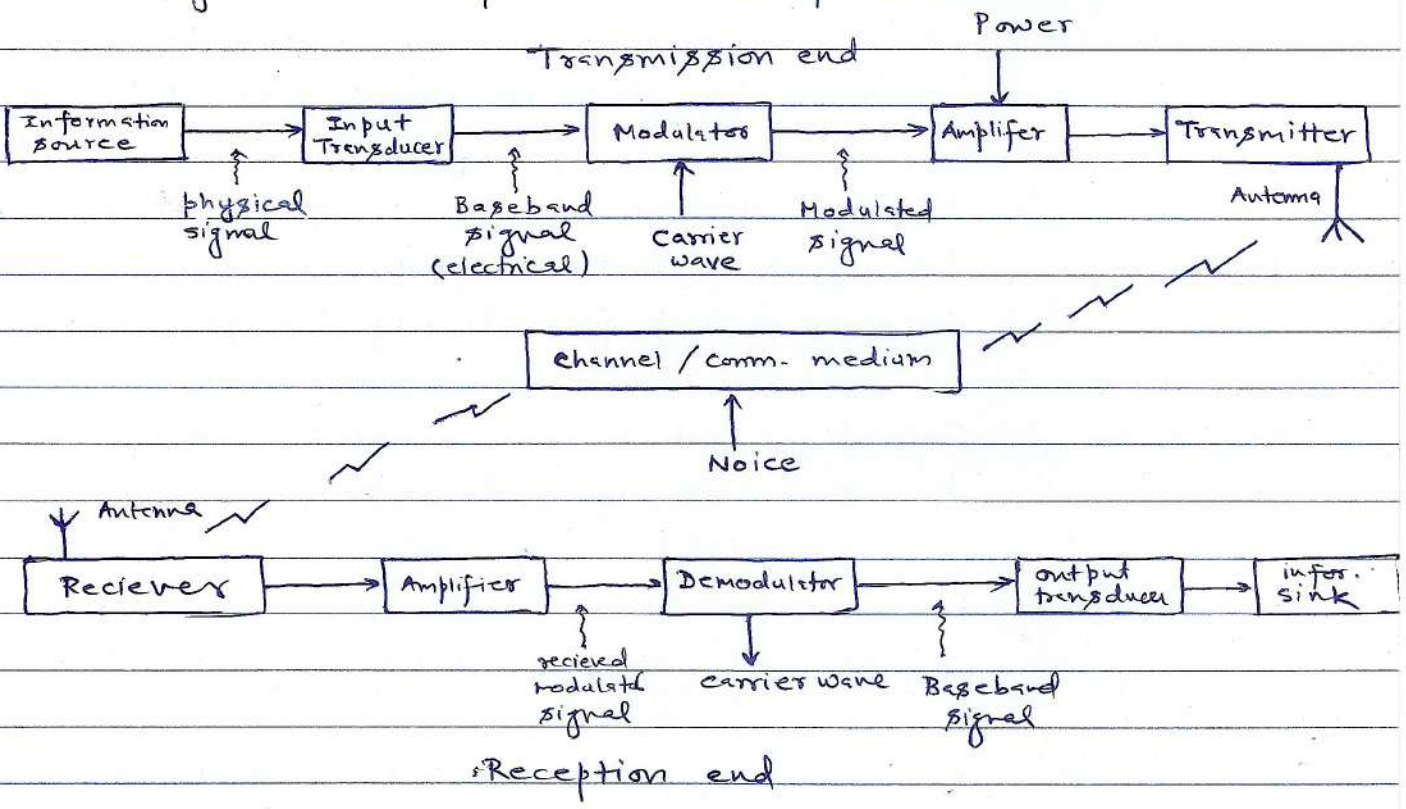 Power
Transmission end
Information
source
Input
Transducer
Modulator
Amplifer
Transmitter
physical
signal
Baseband
signal
(electrical)
Carrier
wave
Modulated
signal
Antenna
Channel / comm. medium
Noice
Antenna
Reciever
Amplifier
Demodulator
output
transducer
infor.
sink
recieved
modulatd
signal
carrier wave
Baseband
signal
Reception end